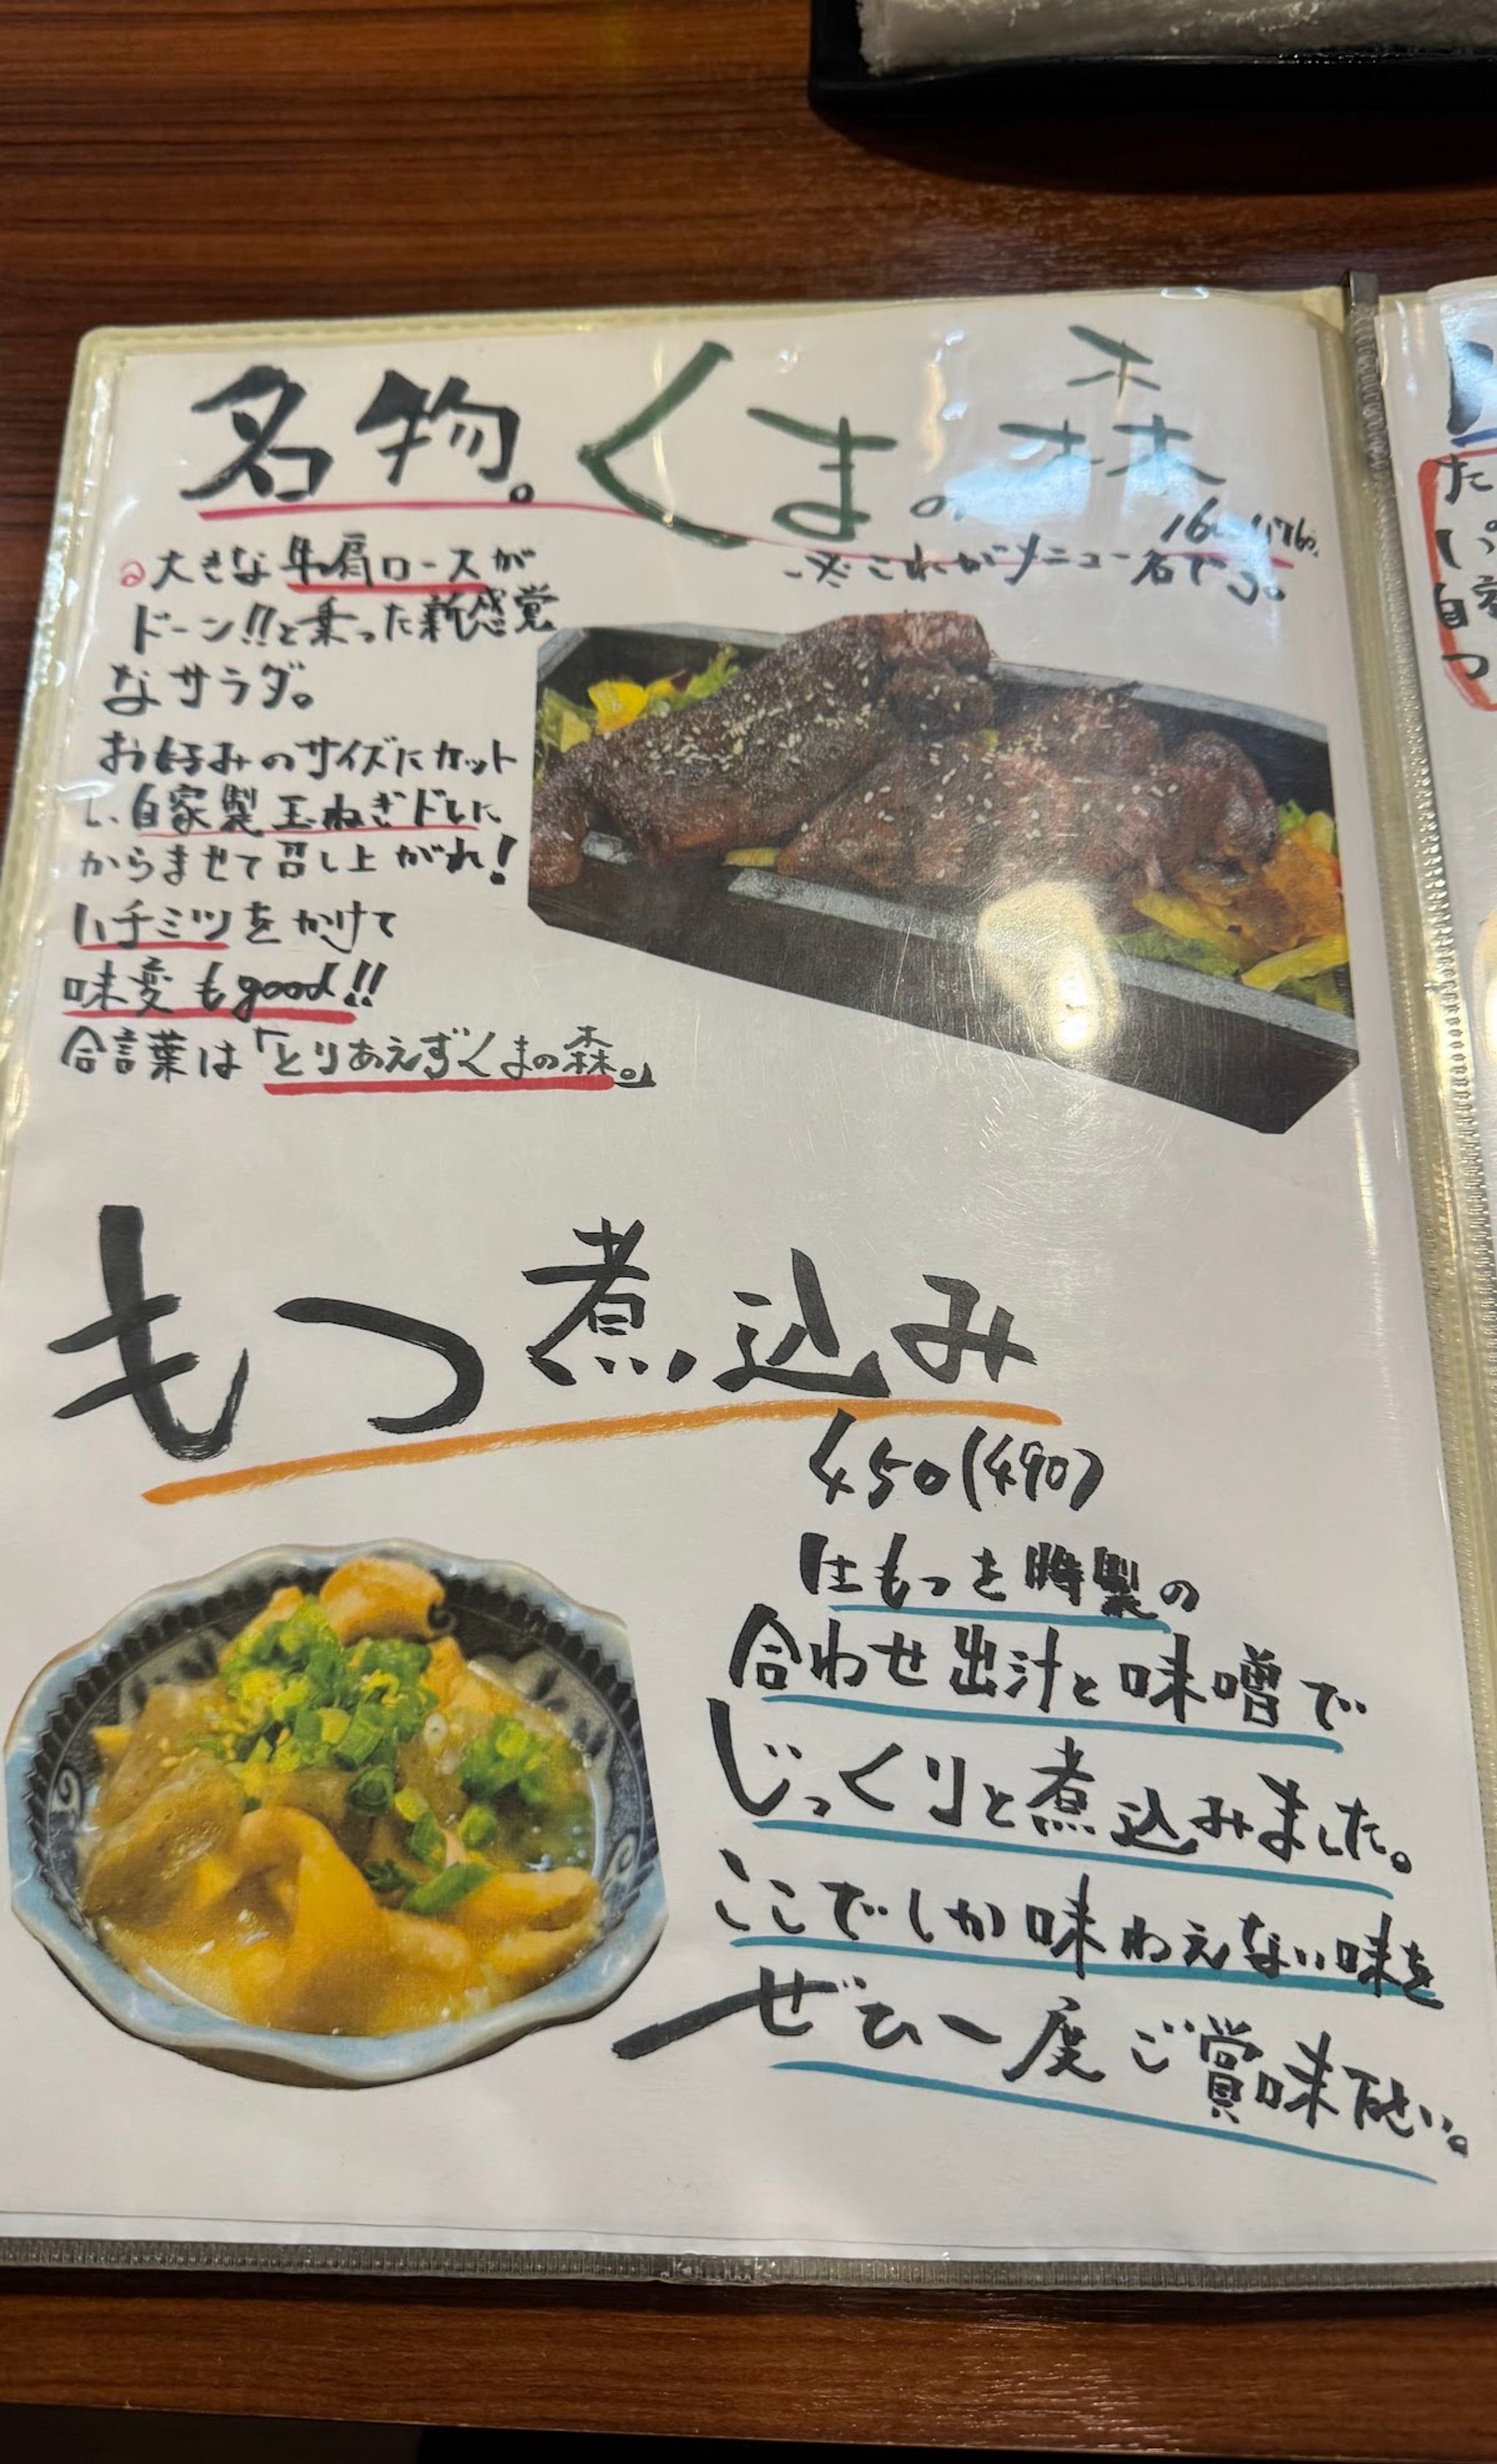 名物。くまの森
※これがメニュー名です。
大きな牛肩ロースが
ドーン!!と乗った新感覚
なサラダ。
お好みのサイズにカット
し、自家製玉ねぎドレに
からませて召し上がれ!
ハチミツをかけて
味変もgood!!
合言葉は「とりあえずくまの森。」
もつ煮込み
450(490)
生もつを特製の
合わせ出汁と味噌で
じっくりと煮込みました。
ここでしか味わえない味を
ぜひ一度ご賞味下さい。